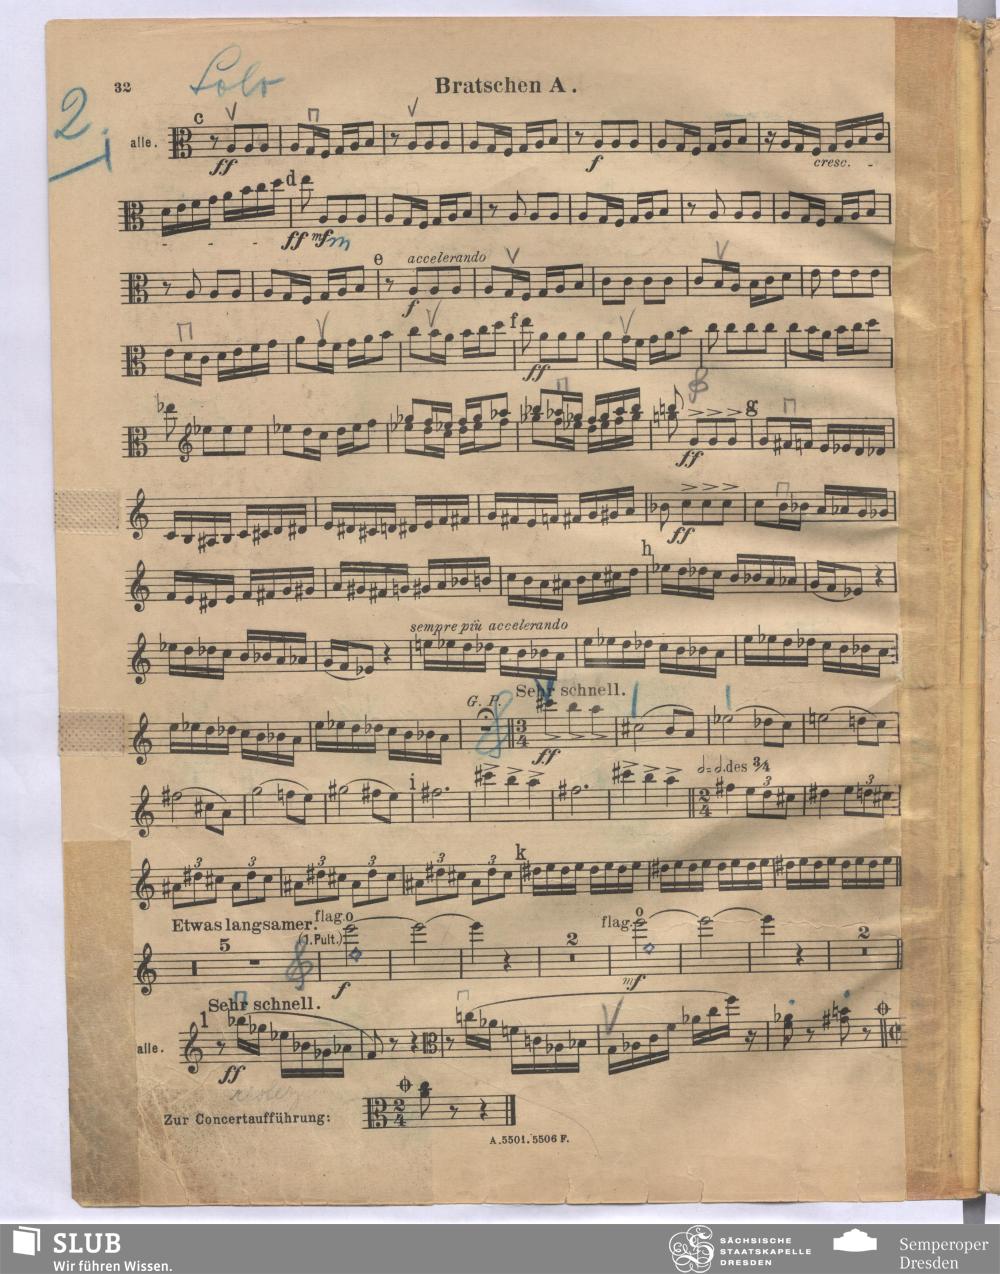 32 Solo Bratschen A.
2.
c
alle. ff f cresc. -
d
- - - ff mf m
e accelerando
f
f
ff
g
ff
ff
h
sempre più accelerando
G. P. Sehr schnell.
3 4 ff
i des 3/4
2 4 3 3
3 3 3 3 3 3 k
Etwas langsamer. flag. o flag. o
5 (1. Pult.) 2 2
f mf
Sehr schnell.
1
alle. ff
Zur Concertaufführung: 2 4
A. 5501. 5506 F.
SLUB
Wir führen Wissen.
SÄCHSISCHE
STAATSKAPELLE
DRESDEN
Semperoper
Dresden